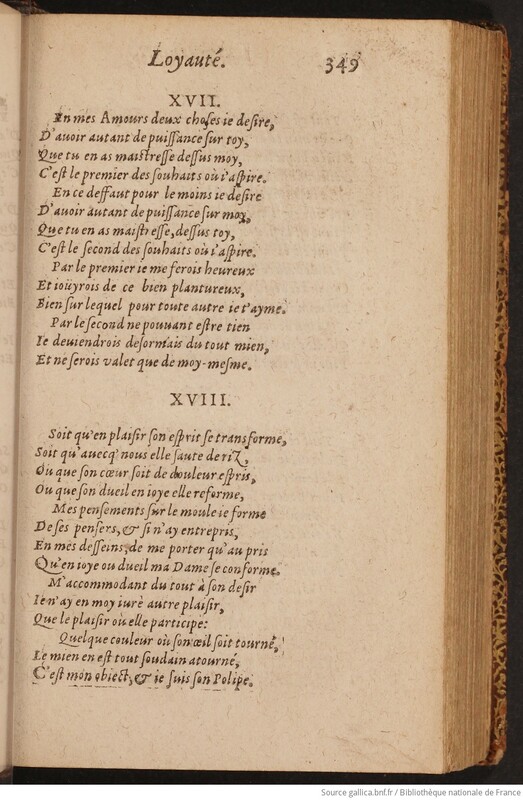 Loyauté. 349
XVII.
En mes Amours deux choses ie desire,
D'auoir autant de puissance sur toy,
Que tu en as maistresse dessus moy,
C'est le premier des souhaits où i'aspire.
En ce deffaut pour le moins ie desire
D'auoir autant de puissance sur moy,
Que tu en as maistresse, dessus toy,
C'est le second des souhaits où i'aspire.
Par le premier ie me ferois heureux
Et iouyrois de ce bien plantureux,
Bien sur lequel pour toute autre ie t'ayme.
Par le second ne pouuant estre tien
Ie deuiendrois desormais du tout mien,
Et ne serois valet que de moy-mesme.
XVIII.
Soit qu'en plaisir son esprit se transforme,
Soit qu'auecq' nous elle saute de riz,
Ou que son cœur soit de douleur espris,
Ou que son dueil en ioye elle reforme,
Mes pensements sur le moule ie forme
De ses pensers, & si n'ay entrepris,
En mes desseins, de me porter qu'au pris
Qu'en ioye ou dueil ma Dame se conforme.
M'accommodant du tout à son desir
Ie n'ay en moy iuré autre plaisir,
Que le plaisir où elle participe:
Quelque couleur où son œil soit tourné,
Le mien en est tout soudain atourné,
C'est mon obiect, & ie suis son Polipe.
Source gallica.bnf.fr / Bibliothèque nationale de France